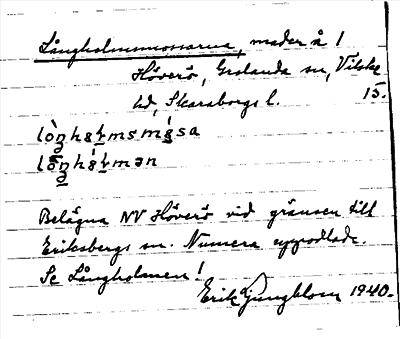 Långholmsmossarna, mader å 1
Höverö, Grolanda sn, Vilske
hd, Skaraborgs l. 15.
Belägna NV Höverö vid gränsen till
Eriksbergs sn. Numera uppodlade.
Se Långholmen!
Erik Ljungblom 1940.